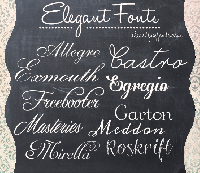 Elegant Fonts
Allegro Castro
Exmouth Egregio
Freebooter Garton
Masteries Meddon
Mirella Roskrift